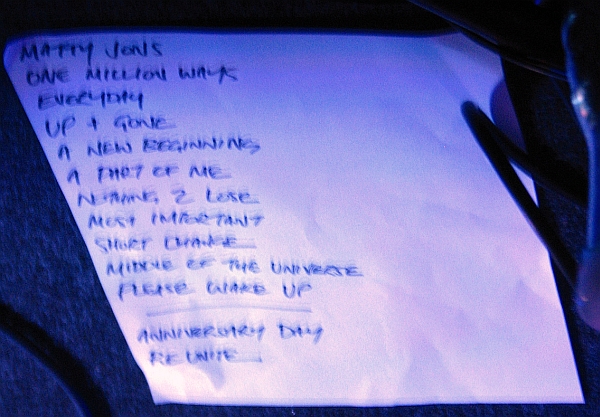 MATTY JONS
ONE MILLION WAYS
EVERYDAY
UP + GONE
A NEW BEGINNING
A PART OF ME
NOTHING 2 LOSE
MOST IMPORTANT
SHORT CHANGE
MIDDLE OF THE UNIVERSE
PLEASE WAKE UP
ANNIVERSARY DAY
REUNITE